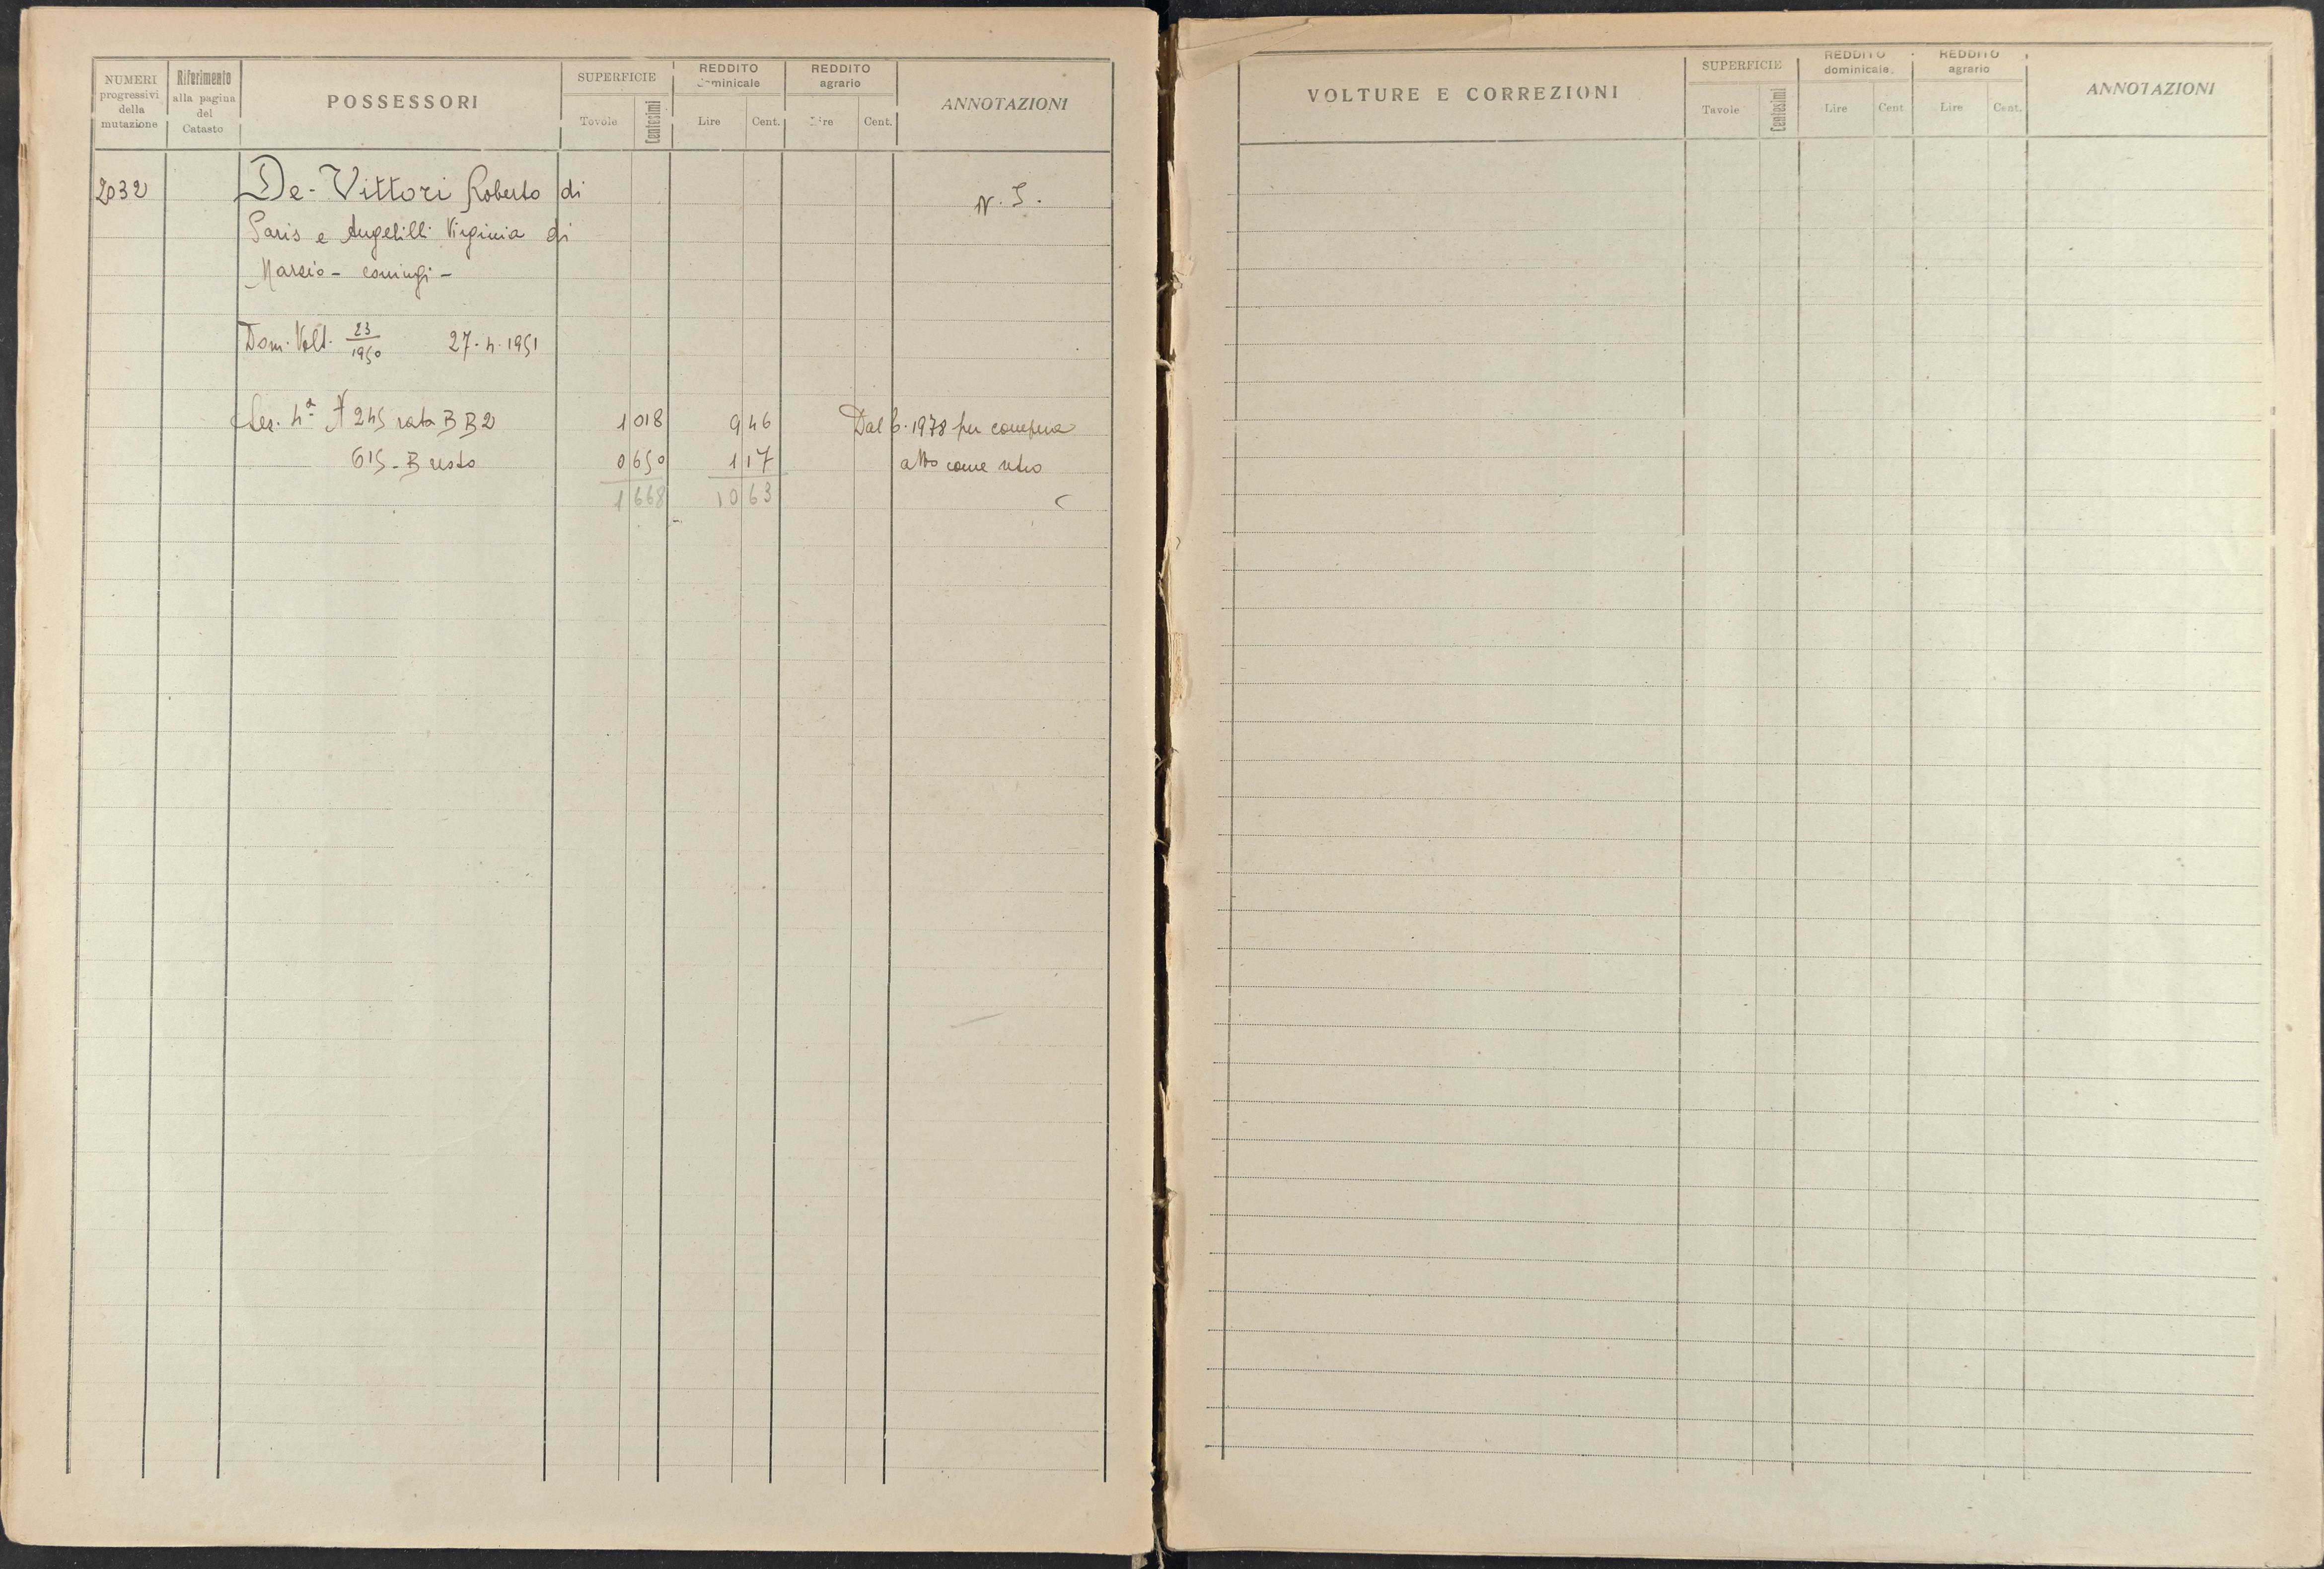 NUMERI progressivi della mutazione
Riferimento alla pagina del Catasto
POSSESSORI
SUPERFICIE
Tavole Centesimi
REDDITO dominicale
Lire Cent.
REDDITO agrario
Lire Cent.
ANNOTAZIONI
2032 De-Vittori Roberto di N. I.
Paris e Angelilli Virginia di
Marcio - coniugi -
Dom. Volt. 23/1950 27. 4. 1951
Sez. 4ª N 245 rata B B2 1 018 9 46 Dal 6. 1978 per compera
615 - B resto 0 650 1 17 atto come retro
1 668 10 63
VOLTURE E CORREZIONI
SUPERFICIE
Tavole Centesimi
REDDITO dominicale
Lire Cent
REDDITO agrario
Lire Cent.
ANNOTAZIONI